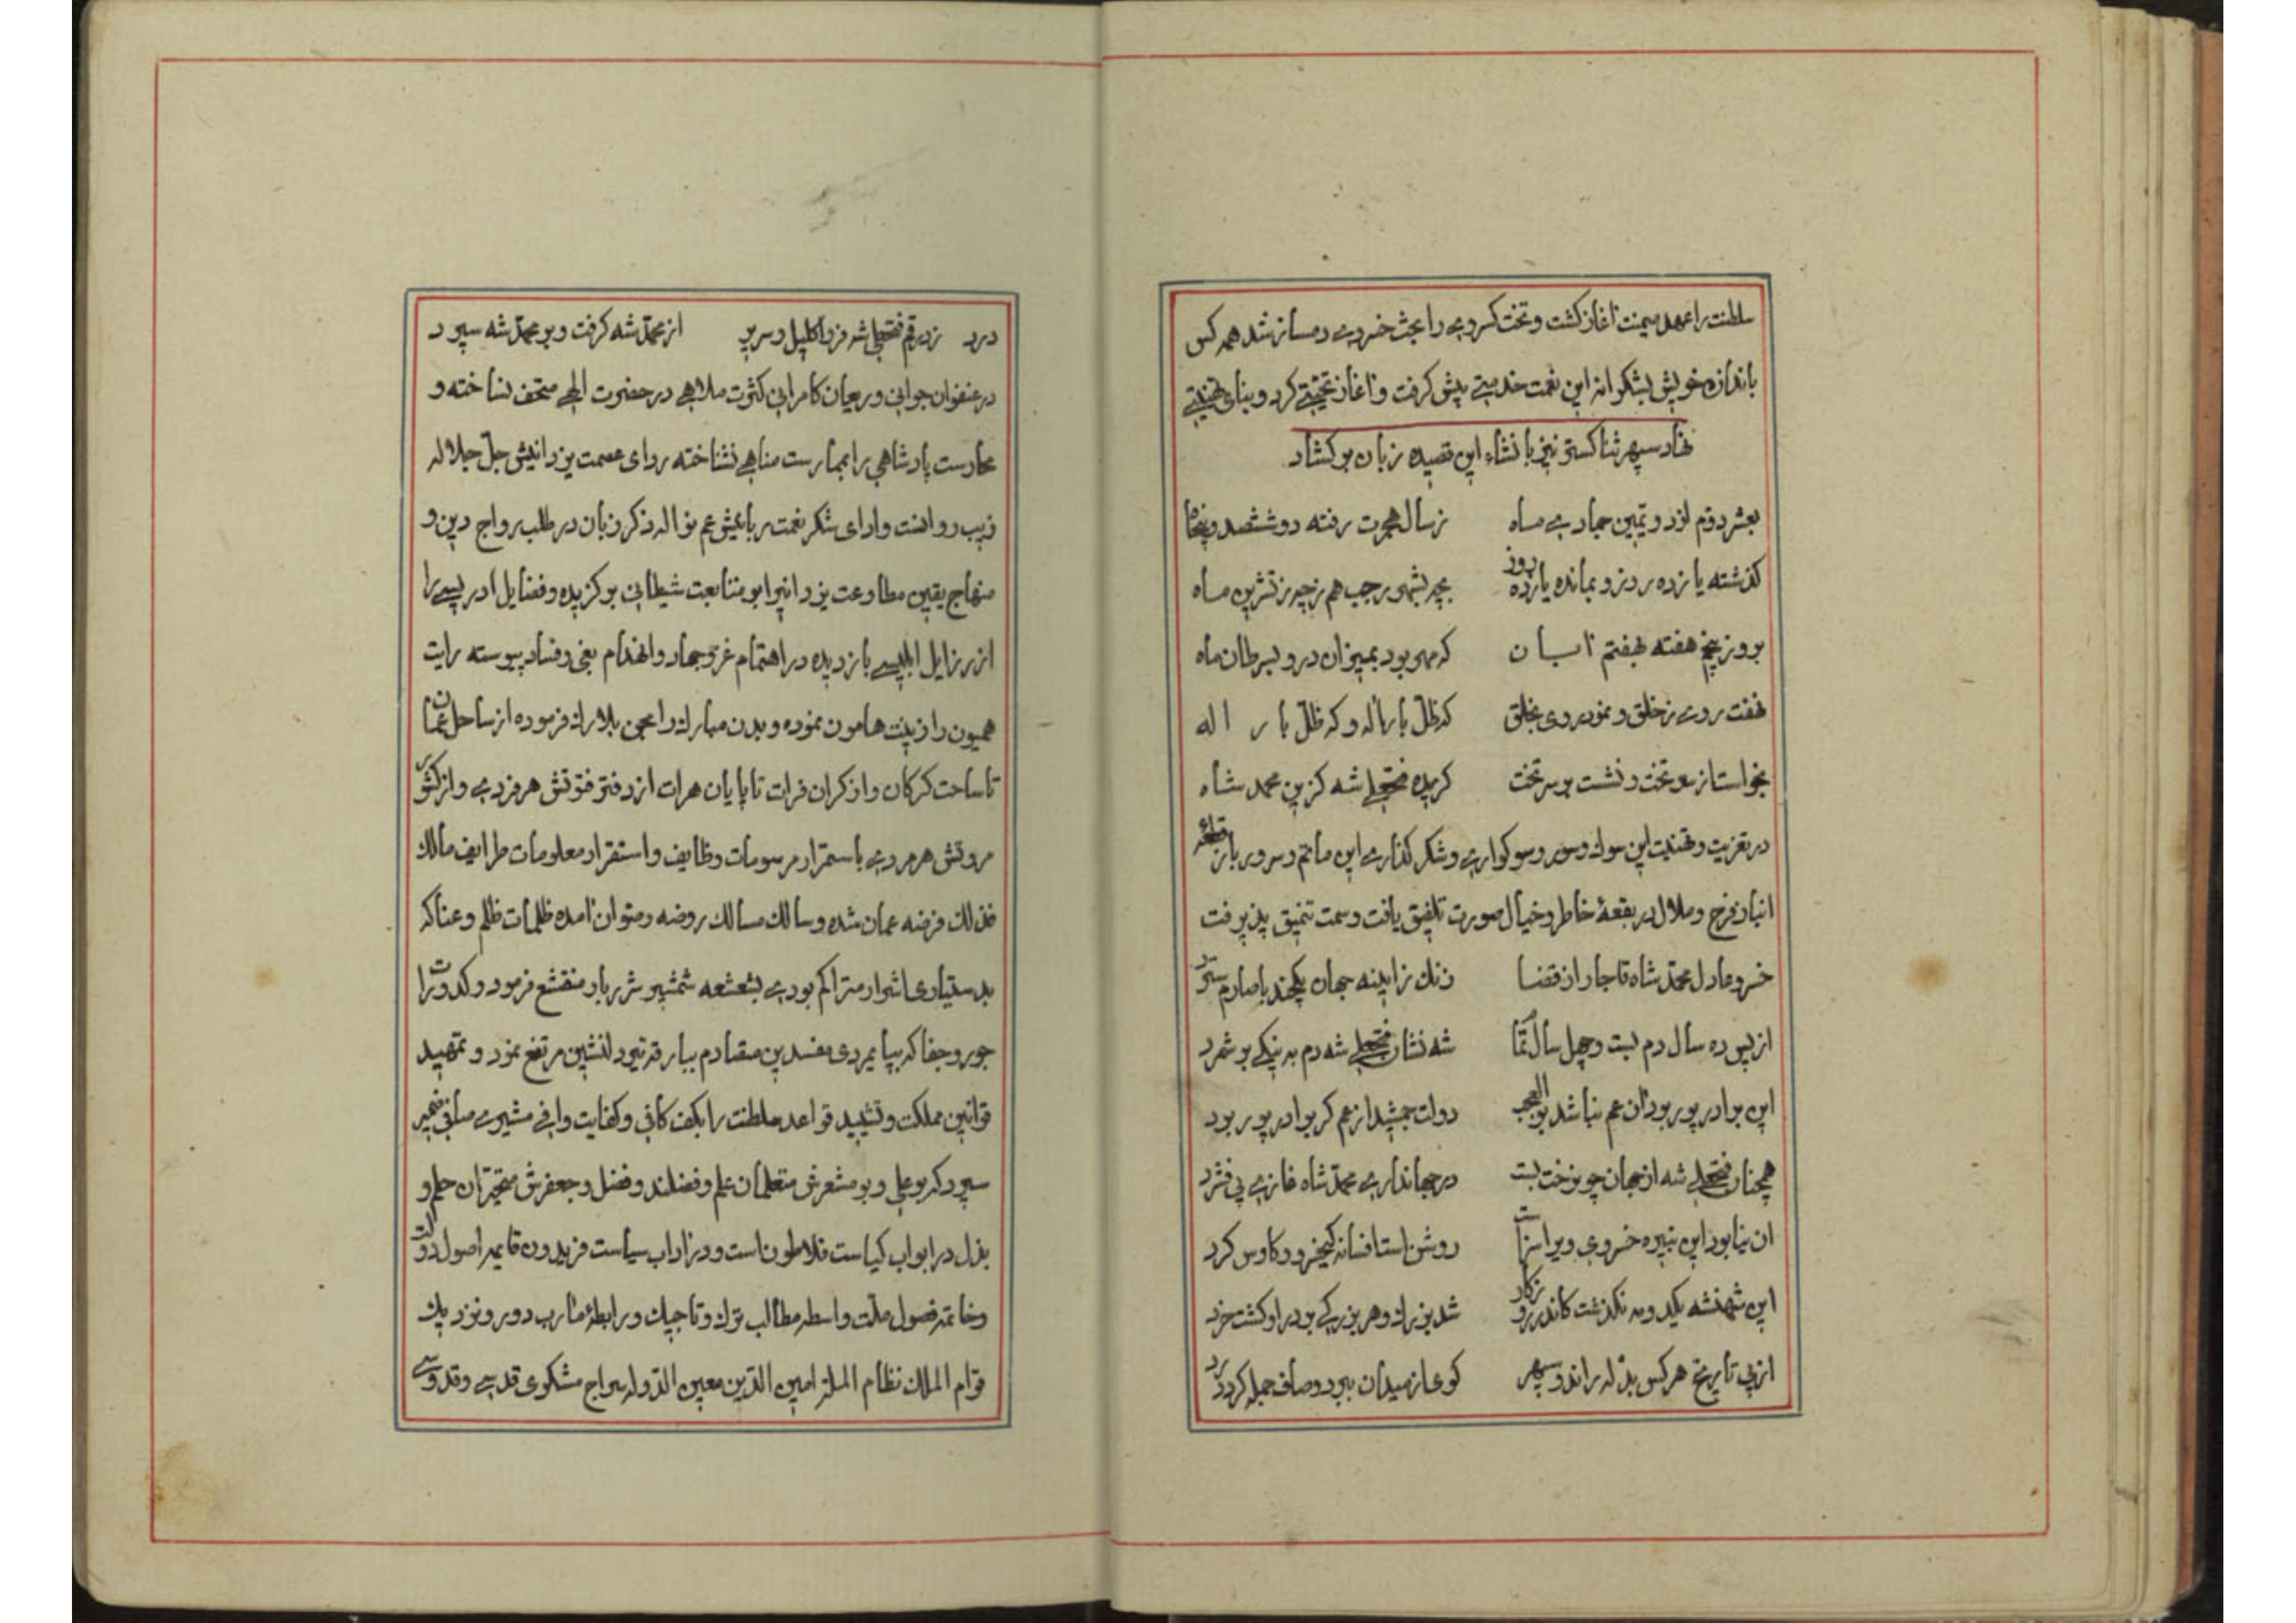 سلطنت را عهد میمنت آغاز کشت و تخت کسروی را بخت خسروی دمساز شد هر کس
باندازه خویش بشکرانه این نعمت خدمتی پیش کرفت و آغاز تحیتی کرد و بنای تهنیتی
نهاد سپهر ثنا کستر نیز بانشاء این قصیده زبان بر کشاد
بعشر دوم از دویمین جمادی ماه زسال هجرت رفته دو ششصد و پنجاه
کذشته یازده روز و بمانده یازده روز بچه بشهر رجب هم زچه زتشرین ماه
بروز پنج هفته بهفتم آبان که مهر بود بمیزان درو بسرطان ماه
نهفت روی زخلق و نمود روی بخلق که ظل بار اله و که ظل بار اله
بخواست از سر تخت و نشست بر سر تخت کزیده فتحعلی شه کزین محمد شاه
در تعزیت و تهنیت این سوك و سور و سوکواری و شکر کذاری این ماتم و سرور باز قطعه
انباز فرح و ملال در بقعهٔ خاطر و خیال صورت تلفیق یافت و سمت تنمیق پذیرفت
خسرو عادل محمد شاه قاجار از قضا زنك زایینه جهان یکچند با صارم سترد
از پس ده سال دم بیست و چهل سال تمام شه نشان فتحعلی شه دم به نیکی بر شمرد
این برادر پور بود آن عم نباشد بو العجب دولت جمشید از عم کر برادر پور برد
همچنان فتحعلی شه از جهان چو رخت بست در جهانداری محمد شاه غازی پی فشرد
ان نیا بود این نبیره خسروی ویرا سزاست روشن است افسانه کیخسرو و کاوس کرد
این شهنشه یکدو مه نکذشت کاندر روزکار شد بزرك و هر بزرکی بود از او کشت خرد
از پی تاریخ هر کس بذله راند و سپهر کوی از میدان ببرد و صاف جمله کرد درد
درد زد رقم فتحعلی شه فرد اکلیل و سریر از محمد شه کرفت و بر محمد شه سپرد
در عنفوان جوانی و ریعان کامرانی کثرت ملاهی در حضرت الهی متحف نساخته و
محارست پادشاهی را بممارست مناهی نشناخته ردای عصمت یزدانیش جل جلاله
زیب روانست و ادای شکر نعمت ربانیش عم نواله ذکر زبان در طلب رواج دین و
منهاج یقین مطاوعت یزدانیرا بر متابعت شیطانی بر کزیده و فضایل ادریسی را
از رزایل ابلیسی باز دیده در اهتمام غزو جهاد و انهدام بغی و فساد پیوسته رایت
همیون را زینت هامون نموده و بدن مبارك را بلارك فرموده از ساحل عمان
تا ساحت کرکان و از کران فرات تا پایان هرات از دفتر فتوتش هر فردی و از کشور
مروتش هر مردی باستمرار مرسومات وظایف و استقرار معلومات طرایف مالك
فذلك فرضه عمان شده و سالك مسالك روضه رضوان آمده ظلمات ظلم و عنا که
بدستیاری اشرار متراکم بودی بشعشعه شمشیر شرر بار منقشع فرمود و کدورت را
جور و جفا که بپایمردی مفسدین متصادم ببارقه تیر دلنشین مرتفع نمود و تمهید
قوانین مملکت و تشیید قواعد سلطنت را بکف کافی و کفایت وافی مشیری صافی ضمیر
سپرد که بو علی و بو مشعرش متعلمان علم و فضلند و فضل و جعفرش متحیران حلم و
بذل در ابواب کیاست فلاطون است و در آداب سیاست فریدون قایمه اصول دولت
و خاتمه فصول ملت واسطه مطالب ترك و تاجیك و رابطه مآرب دور و نزدیك
قوام الملك نظام الملة امین الدین معین الدوله سراج مشکوی قدسی و قدوسی